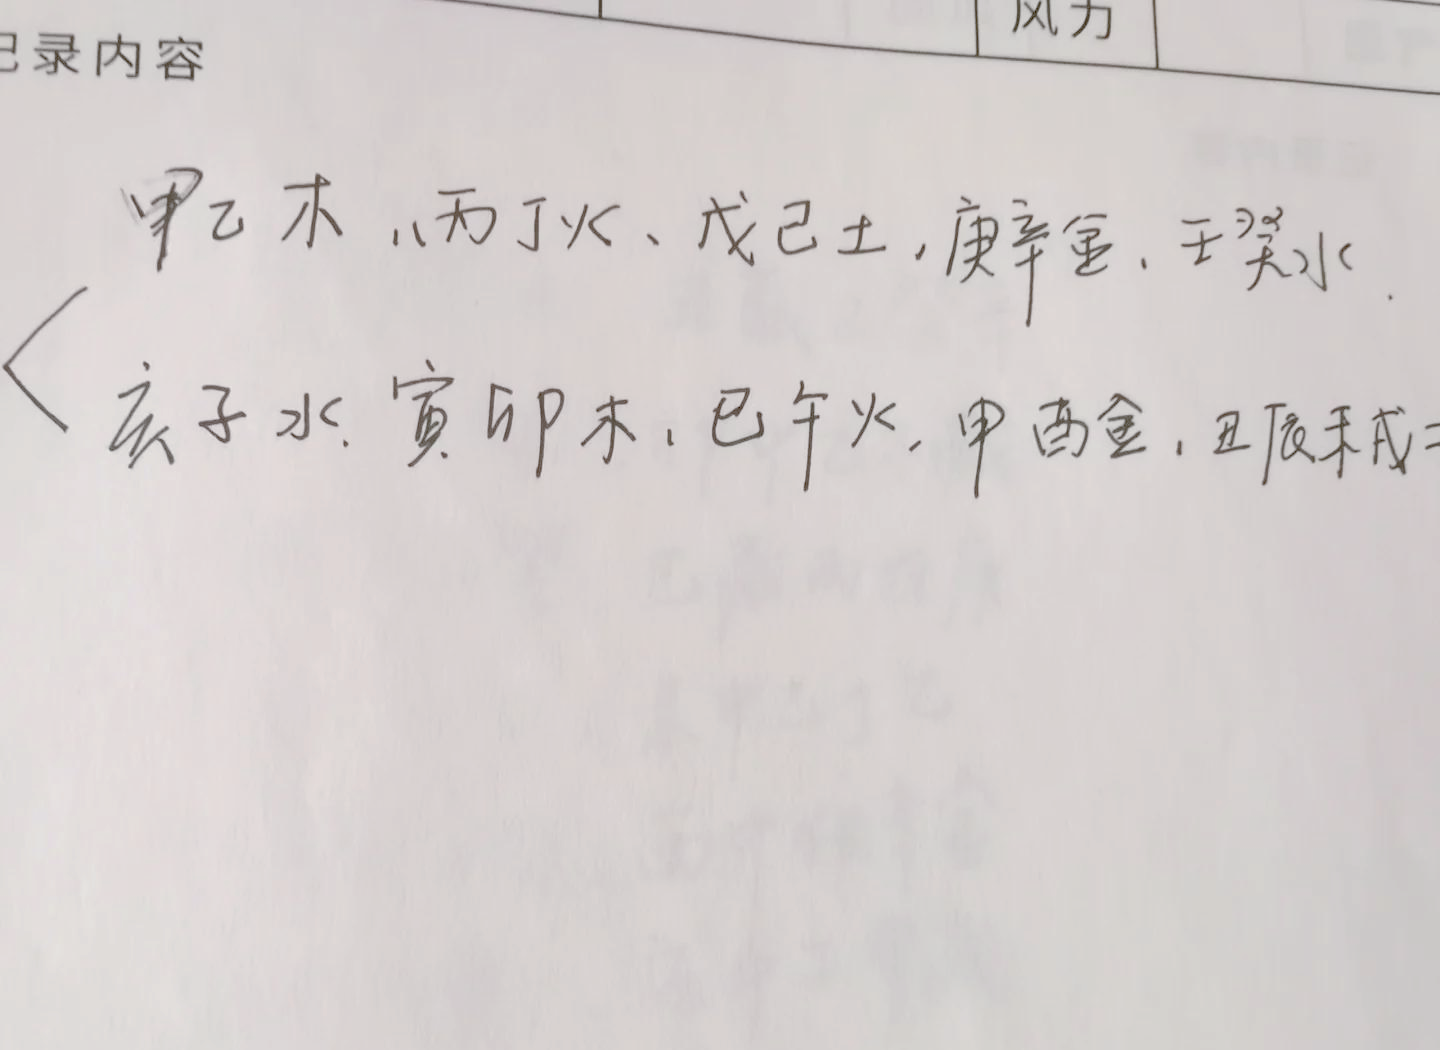 风力
记录内容
甲乙木、丙丁火、戊己土,庚辛金、壬癸水.
亥子水、寅卯木、巳午火、申酉金、丑辰未戌